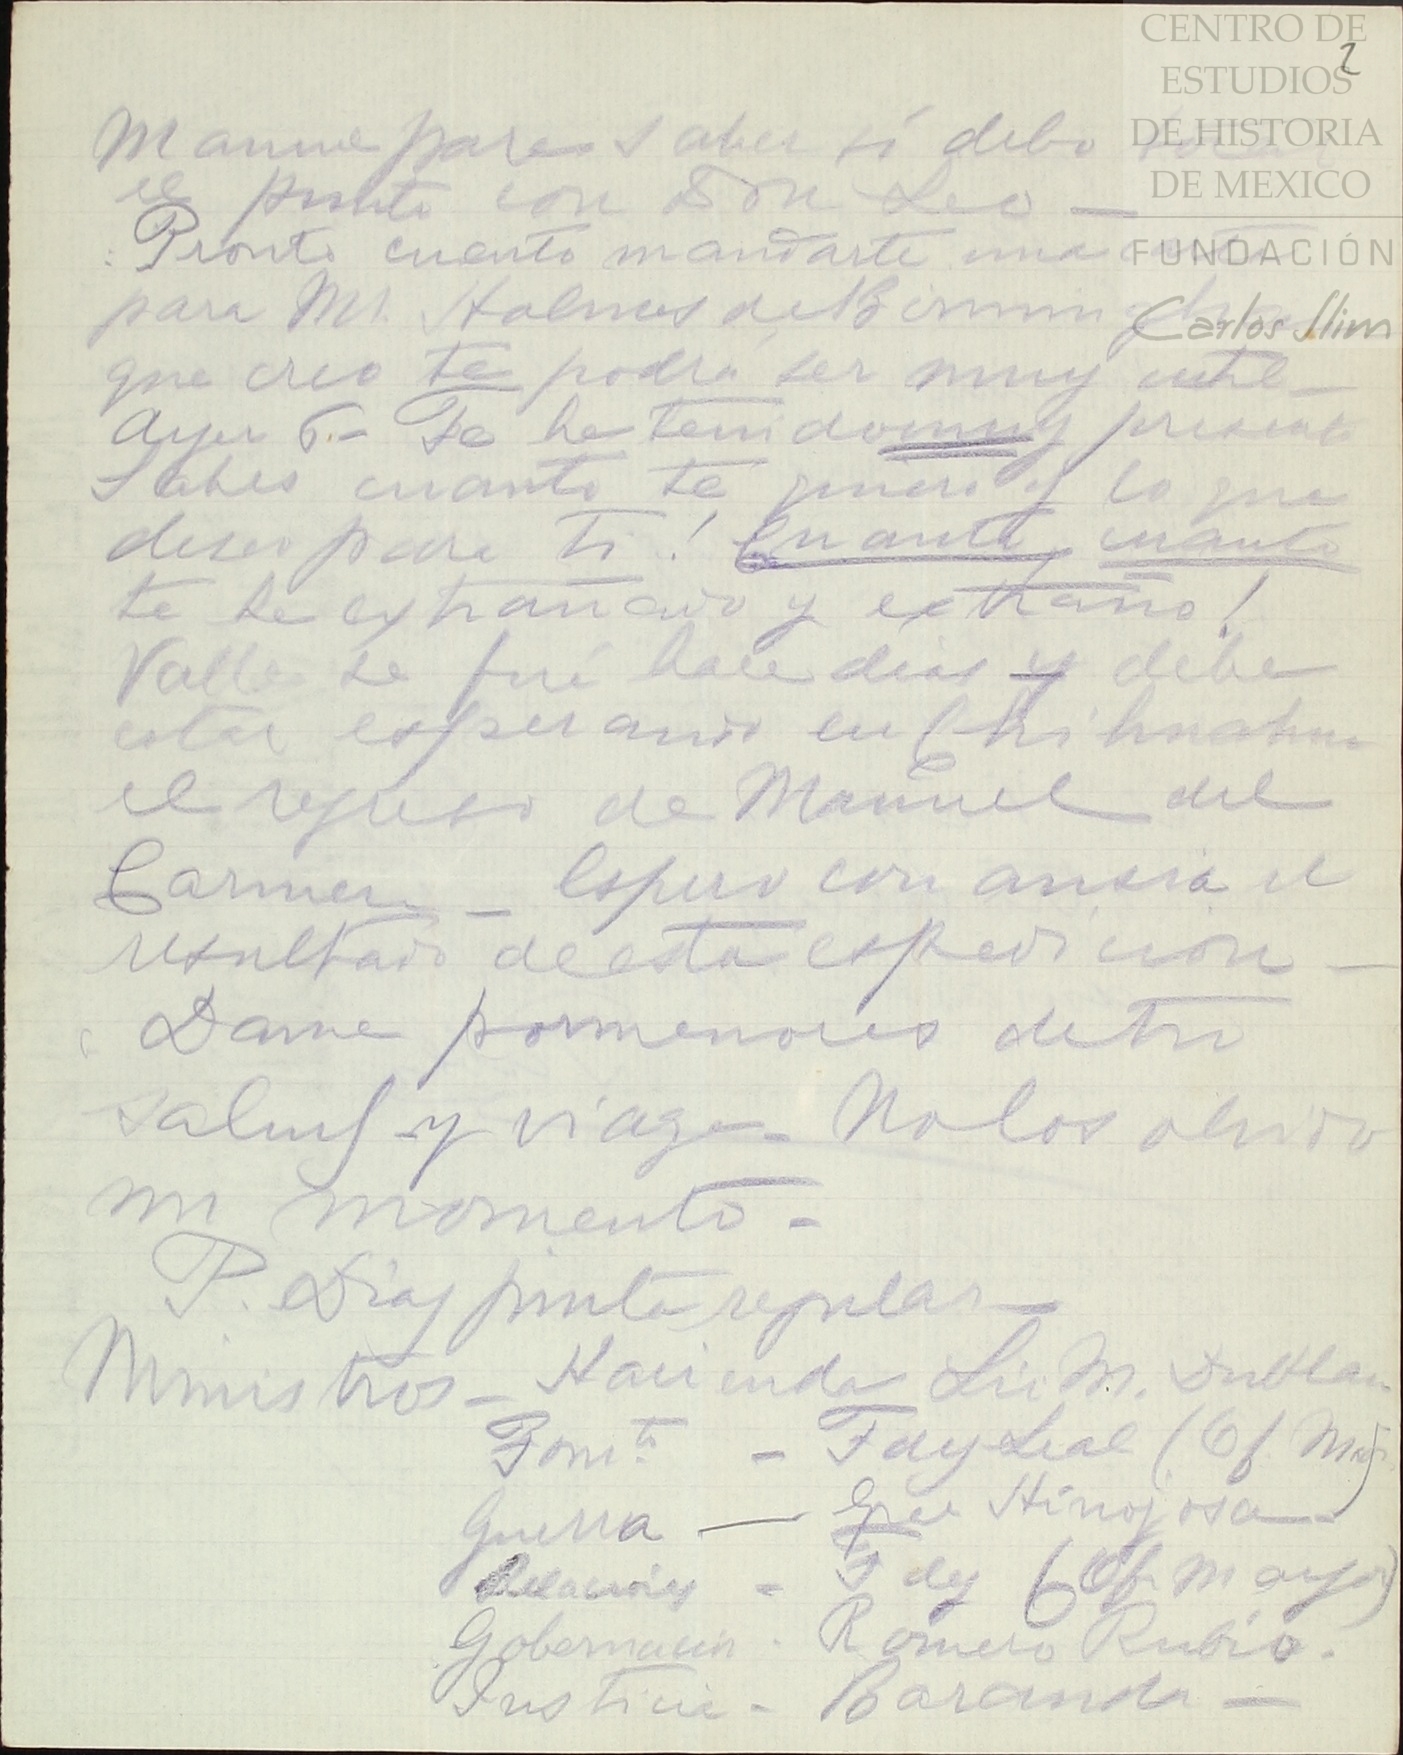 CENTRO DE
ESTUDIOS
DE HISTORIA
DE MEXICO
FUNDACIÓN
Carlos Slim
2
para saber si debo
el punto con Don Leo —
Pronto cuento mandarte una
para Mr. Holmes de Birmingham
que creo te podrá ser muy util —
Ayer 6 — Te he tenido muy presente
Sabes cuanto te quiero y lo que
deseo para ti! Cuanto, cuanto
te he extrañado y extraño!
Valle se fué hace dias y debe
estar esperando en Chihuahua
el regreso de Manuel del
Carmen — Espero con ansia el
resultado de esta espedicion —
Dame pormenores de tu
salud y viage — No los olvido
un momento —
P. Diaz pinta regular —
Ministros — Hacienda Lic M. Dublan
Fomto — Leal (Of. May
Guerra — Gral Hinojosa —
Relaciones — (Of. Mayor)
Gobernacion - Romero Rubio.
Justicia - Baranda —